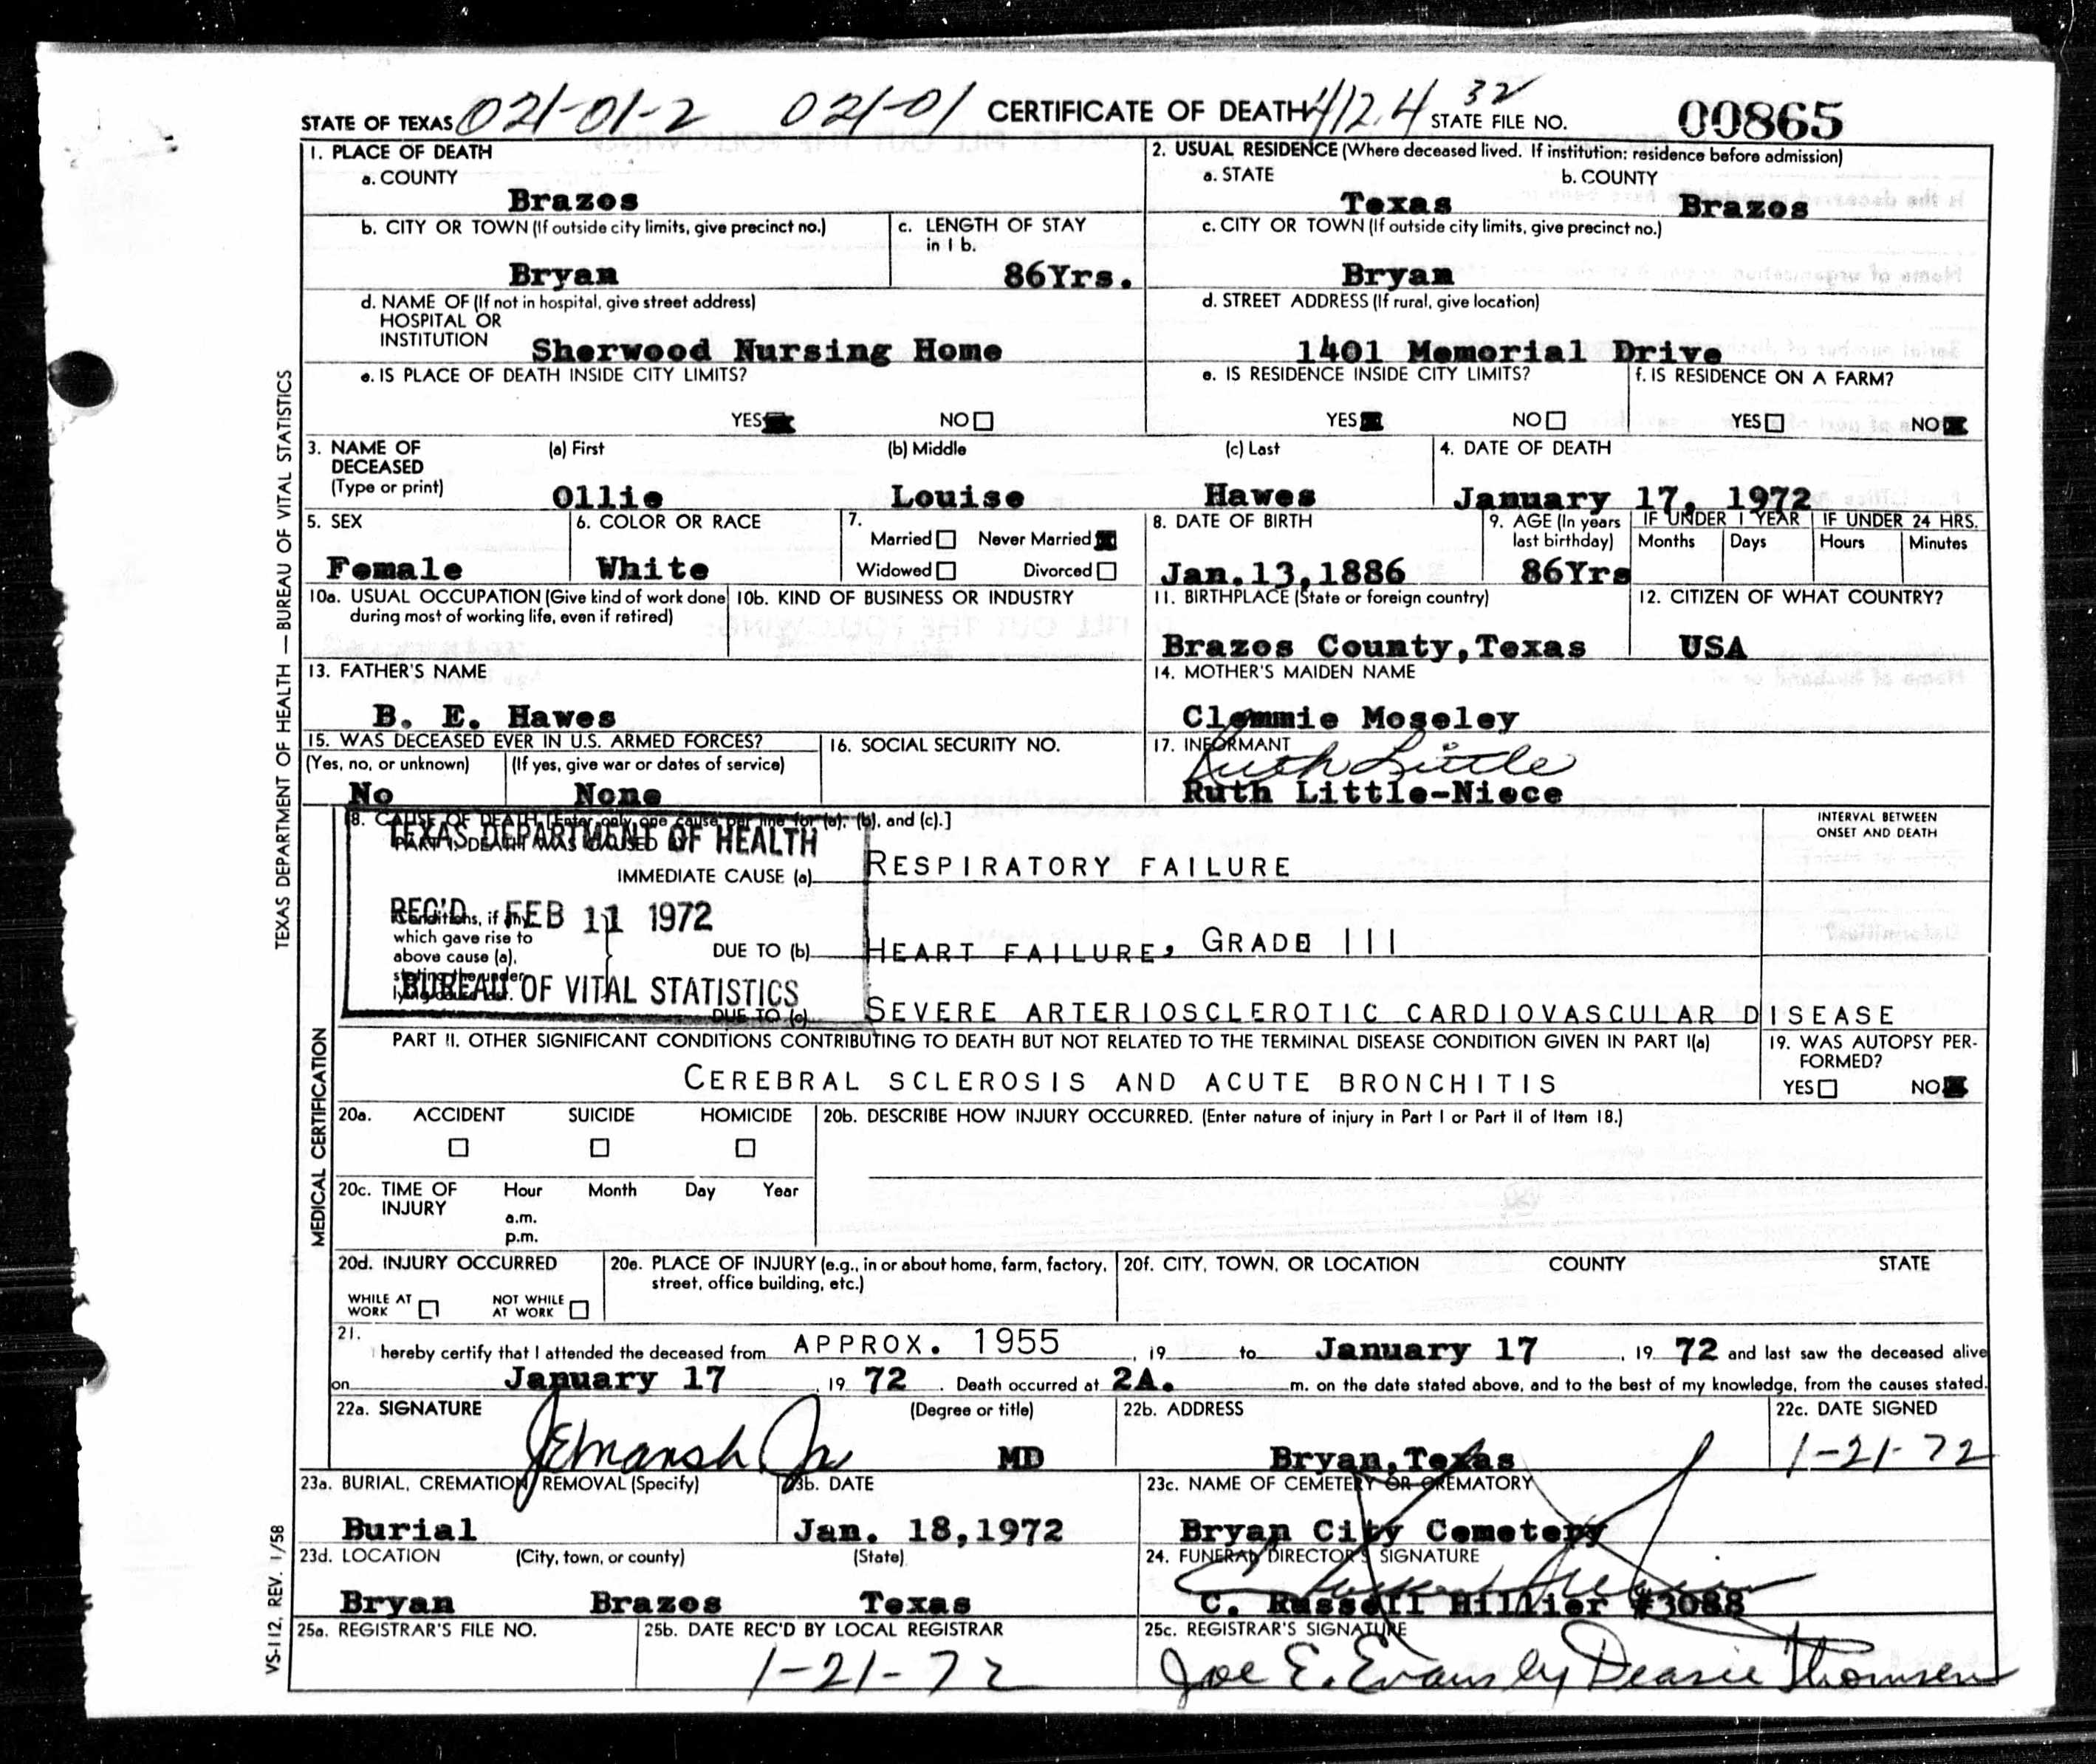 STATE OF TEXAS 021-01-2 021-01 CERTIFICATE OF DEATH 412.4 32 STATE FILE NO. 00865
1. PLACE OF DEATH
a. COUNTY
Brazos
2. USUAL RESIDENCE (Where deceased lived. If institution: residence before admission)
a. STATE b. COUNTY
Texas Brazos
b. CITY OR TOWN (If outside city limits, give precinct no.)
Bryan
c. LENGTH OF STAY
in 1 b.
86Yrs.
c. CITY OR TOWN (If outside city limits, give precinct no.)
Bryan
d. NAME OF (If not in hospital, give street address)
HOSPITAL OR
INSTITUTION Sherwood Nursing Home
d. STREET ADDRESS (If rural, give location)
1401 Memorial Drive
e. IS PLACE OF DEATH INSIDE CITY LIMITS?
YES NO
e. IS RESIDENCE INSIDE CITY LIMITS?
YES NO
f. IS RESIDENCE ON A FARM?
YES NO
3. NAME OF
DECEASED
(Type or print)
(a) First (b) Middle (c) Last
Ollie Louise Hawes
4. DATE OF DEATH
January 17, 1972
5. SEX
Female
6. COLOR OR RACE
White
7.
Married Never Married
Widowed Divorced
8. DATE OF BIRTH
Jan.13,1886
9. AGE (In years
last birthday)
86Yrs
IF UNDER 1 YEAR
Months Days
IF UNDER 24 HRS.
Hours Minutes
10a. USUAL OCCUPATION (Give kind of work done
during most of working life, even if retired)
10b. KIND OF BUSINESS OR INDUSTRY
11. BIRTHPLACE (State or foreign country)
Brazos County,Texas
12. CITIZEN OF WHAT COUNTRY?
USA
13. FATHER'S NAME
B. E. Hawes
14. MOTHER'S MAIDEN NAME
Clemmie Moseley
15. WAS DECEASED EVER IN U.S. ARMED FORCES?
(Yes, no, or unknown) (If yes, give war or dates of service)
No None
16. SOCIAL SECURITY NO.
17. INFORMANT
Ruth Little
Ruth Little-Niece
18. CAUSE OF DEATH [Enter only one cause per line for (a), (b), and (c).]
PART I. DEATH WAS CAUSED
TEXAS DEPARTMENT OF HEALTH
REC'D FEB 11 1972
BUREAU OF VITAL STATISTICS
INTERVAL BETWEEN
ONSET AND DEATH
IMMEDIATE CAUSE (a) RESPIRATORY FAILURE
Conditions, if any,
which gave rise to
above cause (a),
stating the under-
lying cause last.
DUE TO (b) HEART FAILURE, GRADE III
DUE TO (c) SEVERE ARTERIOSCLEROTIC CARDIOVASCULAR DISEASE
PART II. OTHER SIGNIFICANT CONDITIONS CONTRIBUTING TO DEATH BUT NOT RELATED TO THE TERMINAL DISEASE CONDITION GIVEN IN PART I(a)
CEREBRAL SCLEROSIS AND ACUTE BRONCHITIS
19. WAS AUTOPSY PER-
FORMED?
YES NO
20a. ACCIDENT SUICIDE HOMICIDE
20b. DESCRIBE HOW INJURY OCCURRED. (Enter nature of injury in Part I or Part II of Item 18.)
20c. TIME OF
INJURY
Hour Month Day Year
a.m.
p.m.
20d. INJURY OCCURRED
WHILE AT
WORK
NOT WHILE
AT WORK
20e. PLACE OF INJURY (e.g., in or about home, farm, factory,
street, office building, etc.)
20f. CITY, TOWN, OR LOCATION COUNTY STATE
21.
I hereby certify that I attended the deceased from APPROX. 1955, 19 to January 17, 19 72 and last saw the deceased alive
on January 17, 19 72. Death occurred at 2A. m. on the date stated above, and to the best of my knowledge, from the causes stated.
22a. SIGNATURE (Degree or title)
JEMarsh Jr MD
22b. ADDRESS
Bryan,Texas
22c. DATE SIGNED
1-21-72
23a. BURIAL, CREMATION, REMOVAL (Specify)
Burial
23b. DATE
Jan. 18,1972
23c. NAME OF CEMETERY OR CREMATORY
Bryan City Cemetery
23d. LOCATION (City, town, or county) (State)
Bryan Brazos Texas
24. FUNERAL DIRECTOR'S SIGNATURE
C. Russell Hillier #3088
25a. REGISTRAR'S FILE NO.
25b. DATE REC'D BY LOCAL REGISTRAR
1-21-72
25c. REGISTRAR'S SIGNATURE
Joe E. Evans by Dearie Thomsen
TEXAS DEPARTMENT OF HEALTH — BUREAU OF VITAL STATISTICS
MEDICAL CERTIFICATION
VS-112, REV. 1/58